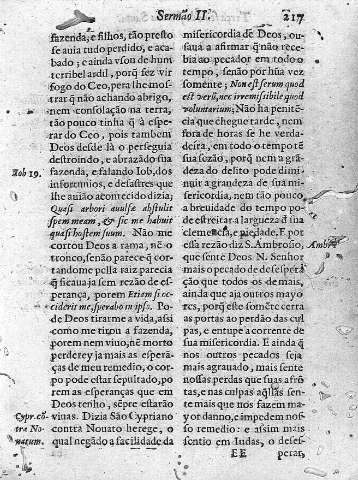 Sermão II. 217
fazenda, e filhos, tão presto
se auia tudo perdido, e aca-
bado; e ainda vsou de hum
terribel ardil, porq̃ sez vir
fogo do Ceo, pera lhe mos-
trar q̃ não achando abrigo,
nem consolação na terra,
tão pouco tinha q̃ à espe-
rar do Ceo, pois tambem
Deos desde là o perseguia
destroindo, e abrazādo sua
Iob 19. fazenda, e falando Iob, dos
infortunios, e desastres que
lhe auião acontecido dizia;
Quasi arbori auulsæ abstulit
spem meam, & sic me habuit
quasi hostem suum. Não me
cortou Deos a rama, nē o
tronco, senão pareceq̃ cor-
tandome pella raiz parecia
q̃ ficaua ja sem rezão de es-
perança, porem Etiam si oc-
ciderit me, sperabo in ipso. Po-
de Deos tirarme a vida, assi
como me tirou a fazenda,
porem nem viuo, nē morto
perderey ja mais as esperā-
ças de meu remedio, o cor-
po pode estar sepultado, po-
rem as esperanças que em
Deos tenho, sēpre estarão
Cypr. cō- viuas. Dizia São Cypriano
tra No- contra Nouato herege, o
uatum. qual negādo a facilidade da
misericordia de Deos, ou-
saua a afirmar q̃ não rece-
bia ao pecador em todo o
tempo, senão por hũa vez
somente; Non est serum quod
est verũ, nec irremissibile quod
voluntarium; Não ha penitē-
cia que chegue tarde, nem
fora de horas se he verda-
deira, em todo o tempo tē
sua sezão, porq̃ nem a grā-
deza do delito pode dimi-
nuir a grandeza de sua mi-
sericordia, nem tão pouco
a breuidade do tempo po-
de estreitar a largueza d̃ sua
clemencia, e piedade. E por
essa rezão diz S. Ambrosio, Ambr.
que sente Deos N. Senhor
mais o pecado de desespera-
ção que todos os de mais,
ainda que aja outros mayo
res, porq̃ elle somēte cerra
as portas ao perdão das cul-
pas, e entupe a corrente de
sua misericordia. E ainda q̃
nos outros pecados seja
mais agrauado, mais sente
nossas perdas que suas afrō-
tas, e nas culpas aq̃llas sēn-
te mais que nos fazem ma-
yor danno, e impedem nos-
so remedio: e assim mais
sentio em Iudas, o deses-
EE perar,